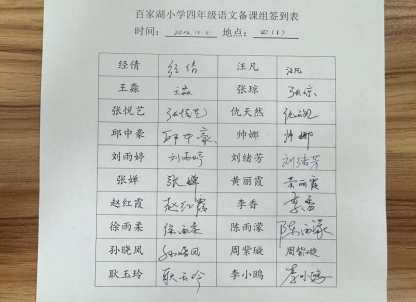 百家湖小学四年级语文备课组签到表
时间： 地点：四(1)
经倩 经倩 汪凡 汪凡
王淼 王淼 张琼 张琼
张悦艺 张悦艺 仇天然 仇天然
邱中豪 邱中豪 帅娜 帅娜
刘雨婷 刘雨婷 刘绪芳 刘绪芳
张婵 张婵 黄丽霞 黄丽霞
赵红霞 赵红霞 李香 李香
徐雨柔 徐雨柔 陈雨濛 陈雨濛
孙晓凤 孙晓凤 周紫璇 周紫璇
耿玉玲 耿玉玲 李小鸥 李小鸥